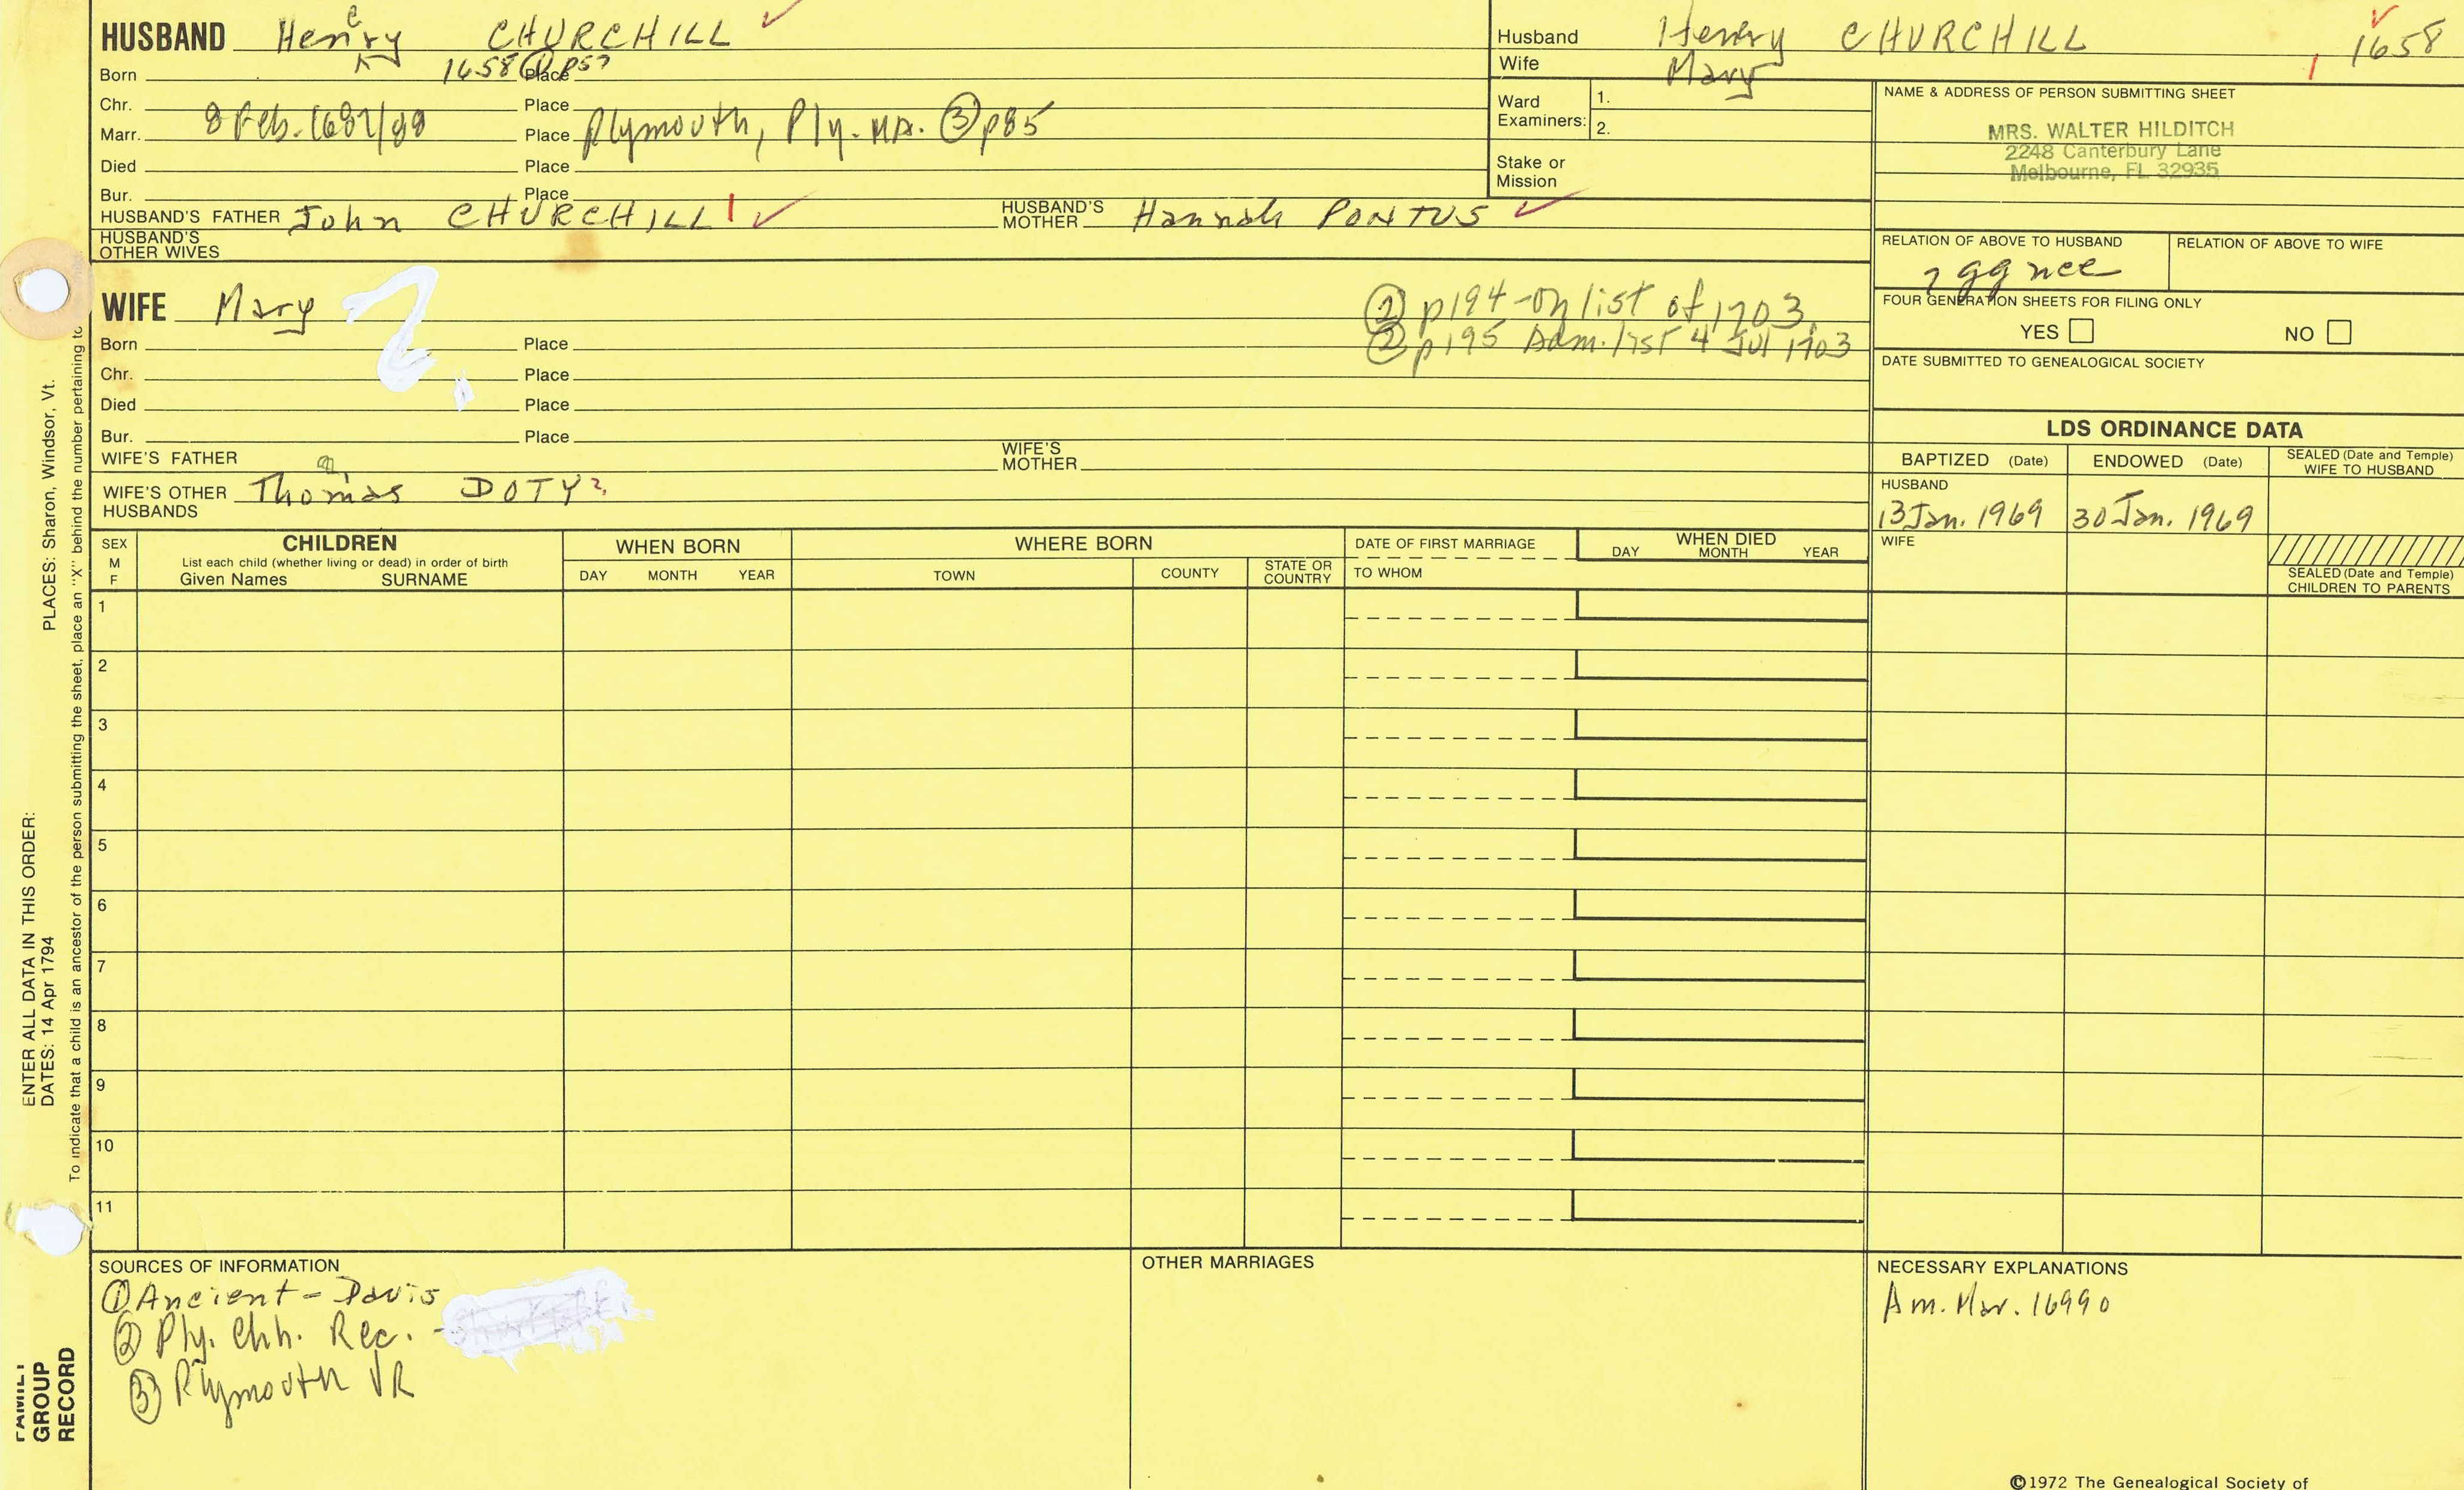 HUSBAND Henry CHURCHILL
Born 1658 ① p57 Place
Chr. Place
Marr. 8 Feb. 1687/88 Place Plymouth, Ply. MA. ③ p85
Died Place
Bur. Place
HUSBAND'S FATHER John CHURCHILL HUSBAND'S MOTHER Hannah PONTUS
HUSBAND'S OTHER WIVES
Husband Henry CHURCHILL 1658
Wife Mary
Ward Examiners: 1.
2.
Stake or Mission
NAME & ADDRESS OF PERSON SUBMITTING SHEET
MRS. WALTER HILDITCH
2248 Canterbury Lane
Melbourne, FL 32935
RELATION OF ABOVE TO HUSBAND RELATION OF ABOVE TO WIFE
gg nee
FOUR GENERATION SHEETS FOR FILING ONLY
YES NO
DATE SUBMITTED TO GENEALOGICAL SOCIETY
WIFE Mary
② p194 - on list of 1703
② p195 Adm. list 4 Jul 1703
Born Place
Chr. Place
Died Place
Bur. Place
WIFE'S FATHER WIFE'S MOTHER
WIFE'S OTHER HUSBANDS Thomas DOTY?
LDS ORDINANCE DATA
BAPTIZED (Date) ENDOWED (Date) SEALED (Date and Temple) WIFE TO HUSBAND
HUSBAND
13 Jan. 1969 30 Jan. 1969
WIFE
SEALED (Date and Temple) CHILDREN TO PARENTS
SEX M F
CHILDREN
List each child (whether living or dead) in order of birth
Given Names SURNAME
WHEN BORN
DAY MONTH YEAR
WHERE BORN
TOWN COUNTY STATE OR COUNTRY
DATE OF FIRST MARRIAGE
TO WHOM
WHEN DIED
DAY MONTH YEAR
1
2
3
4
5
6
7
8
9
10
11
SOURCES OF INFORMATION
① Ancient - Davis
② Ply. Chh. Rec. -
③ Plymouth VR
OTHER MARRIAGES
NECESSARY EXPLANATIONS
Am. Mar. 16990
©1972 The Genealogical Society of
ENTER ALL DATA IN THIS ORDER:
DATES: 14 Apr 1794 PLACES: Sharon, Windsor, Vt.
To indicate that a child is an ancestor of the person submitting the sheet, place an "X" behind the number pertaining to
FAMILY GROUP RECORD